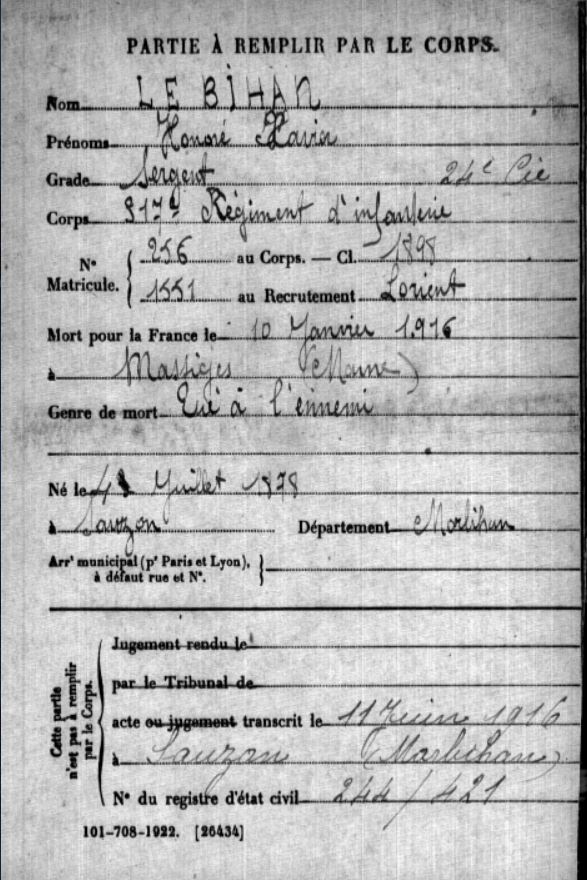 PARTIE À REMPLIR PAR LE CORPS.
Nom LE BIHAN
Prénoms Honoré Xavier
Grade Sergent 24e Cie
Corps 317e Régiment d'infanterie
N° Matricule. { 256 au Corps. — Cl. 1898
1551 au Recrutement Lorient
Mort pour la France le 10 Janvier 1916
à Massiges (Marne)
Genre de mort Tué à l'ennemi
Né le Juillet 1878
à Sauzon Département Morbihan
Arrt municipal (pr Paris et Lyon), à défaut rue et N°. }
Cette partie n'est pas à remplir par le Corps.
Jugement rendu le
par le Tribunal de
acte ou jugement transcrit le 11 Juin 1916
à Sauzon (Morbihan)
N° du registre d'état civil 244/421
101-708-1922. [26434]